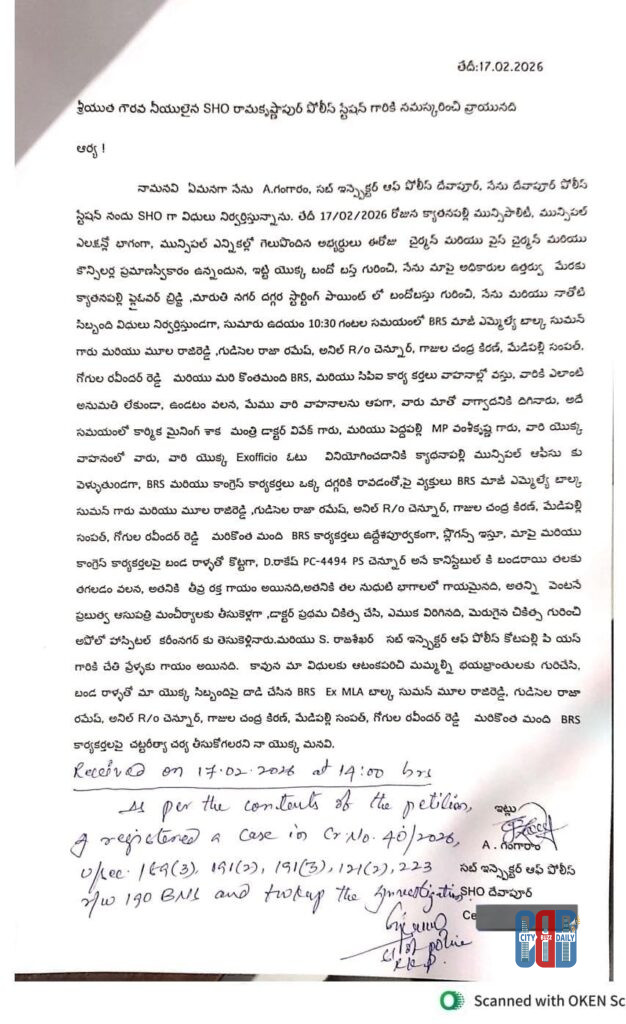 తేదీ:17.02.2026
శ్రీయుత గౌరవ నీయులైన SHO రామకృష్ణాపుర్ పోలీస్ స్టేషన్ గారికి నమస్కరించి వ్రాయునది
ఆర్య !
నామనవి ఏమనగా నేను A.గంగారం, సబ్ ఇన్స్పెక్టర్ ఆఫ్ పోలీస్ దేవాపూర్, నేను దేవాపూర్ పోలీస్
స్టేషన్ నందు SHO గా విధులు నిర్వర్తిస్తున్నాను. తేదీ 17/02/2026 రోజున క్యాతనపల్లి మున్సిపాలిటీ, మున్సిపల్
ఎలక్షన్లో భాగంగా, మున్సిపల్ ఎన్నికల్లో గెలుపొందిన అభ్యర్థులు ఈరోజు చైర్మన్ మరియు వైస్ చైర్మన్ మరియు
కౌన్సిలర్ల ప్రమాణస్వీకారం ఉన్నందున, ఇట్టి యొక్క బందో బస్త్ గురించి, నేను మాపై అధికారుల ఉత్తర్వు మేరకు
క్యాతనపల్లి ఫ్లైఓవర్ బ్రిడ్జి ,మారుతి నగర్ దగ్గర స్టార్టింగ్ పాయింట్ లో బందోబస్తు గురించి, నేను మరియు నాతోటి
సిబ్బంది విధులు నిర్వర్తిస్తుండగా, సుమారు ఉదయం 10:30 గంటల సమయంలో BRS మాజీ ఎమ్మెల్యే బాల్క సుమన్
గారు మరియు మూల రాజిరెడ్డి ,గుడిసెల రాజా రమేష్, అనిల్ R/o చెన్నూర్, గాజుల చంద్ర కిరణ్, మేడిపల్లి సంపత్,
గోగుల రవీందర్ రెడ్డి మరియు మరి కొంతమంది BRS, మరియు సిపిఐ కార్య కర్తలు వాహనాల్లో వస్తు, వారికి ఎలాంటి
అనుమతి లేకుండా, ఉండటం వలన, మేము వారి వాహనాలను ఆపగా, వారు మాతో వాగ్వాదనికి దిగినారు, అదే
సమయంలో కార్మిక మైనింగ్ శాక మంత్రి డాక్టర్ వివేక్ గారు, మరియు పెద్దపల్లి MP వంశీకృష్ణ గారు, వారి యొక్క
వాహనంలో వారు, వారి యొక్క Exofficio ఓటు వినియోగించడానికి క్యాథనాపల్లి మున్సిపల్ ఆఫీసు కు
వెళ్ళుతుండగా, BRS మరియు కాంగ్రెస్ కార్యకర్తలు ఒక్క దగ్గరికి రావడంతో,పై వ్యక్తులు BRS మాజీ ఎమ్మెల్యే బాల్క
సుమన్ గారు మరియు మూల రాజిరెడ్డి ,గుడిసెల రాజా రమేష్, అనిల్ R/o చెన్నూర్, గాజుల చంద్ర కిరణ్, మేడిపల్లి
సంపత్, గోగుల రవీందర్ రెడ్డి మరికొంత మంది BRS కార్యకర్తలు ఉద్దేశపూర్వకంగా, స్లొగన్స్ ఇస్తూ, మాపై మరియు
కాంగ్రెస్ కార్యకర్తలపై బండ రాళ్ళతో కొట్టగా, D.రాకేష్ PC-4494 PS చెన్నూర్ అనే కానిస్టేబుల్ కి బండరాయి తలకు
తగలడం వలన, అతనికి తీవ్ర రక్త గాయం అయినది,అతనికి తల నుధుటి బాగాలలో గాయమైనది, అతన్ని వెంటనే
ప్రబుత్వ ఆసుపత్రి మంచిర్యాలకు తీసుకెళ్లగా ,డాక్టర్ ప్రథమ చికిత్స చేసి, ఎముక విరిగినది, మెరుగైన చికిత్స గురించి
అపోలో హాస్పిటల్ కరీంనగర్ కు తెసుకెళ్లినారు.మరియు S. రాజశేఖర్ సబ్ ఇన్స్పెక్టర్ ఆఫ్ పోలీస్ కోటపల్లి పి యస్
గారికి చేతి వ్రేళ్ళకు గాయం అయినది. కావున మా విధులకు ఆటంకపరిచి మమ్మల్ని భయభ్రాంతులకు గురిచేసి,
బండ రాళ్ళతో మా యొక్క సిబ్బందిపై దాడి చేసిన BRS Ex MLA బాల్క సుమన్ మూల రాజిరెడ్డి, గుడిసెల రాజా
రమేష్, అనిల్ R/o చెన్నూర్, గాజుల చంద్ర కిరణ్, మేడిపల్లి సంపత్, గోగుల రవీందర్ రెడ్డి మరికొంత మంది BRS
కార్యకర్తలపై చట్టరీత్యా చర్య తీసుకోగలరని నా యొక్క మనవి.
Received on 17.02.2026 at 14:00 hrs
As per the contents of the petition,
I registered a case in Cr No. 40/2026,
U/sec. 189(3), 191(2), 191(3), 121(2), 223
r/w 190 BNS and tookup the Investigation.
ఇట్లు
A . గంగారాం
సబ్ ఇన్స్పెక్టర్ ఆఫ్ పోలీస్
SHO దేవాపూర్
Ce
SI of police
R.K.P.
CITY DAILY
Scanned with OKEN Sc